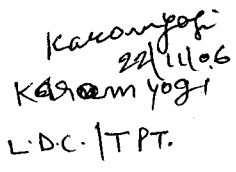 Karamyogi
22/11/06
Karam yogi
L.D.C. / TPT.